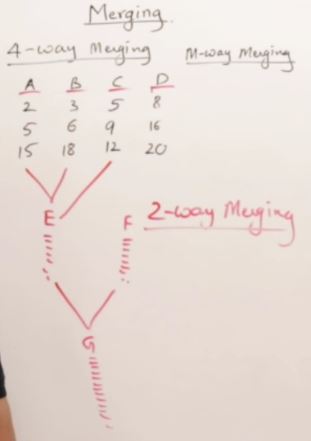 Merging
4-way Merging
M-way Merging
A B C D
2 3 5 8
5 6 9 16
15 18 12 20
E
F
2-way Merging
G